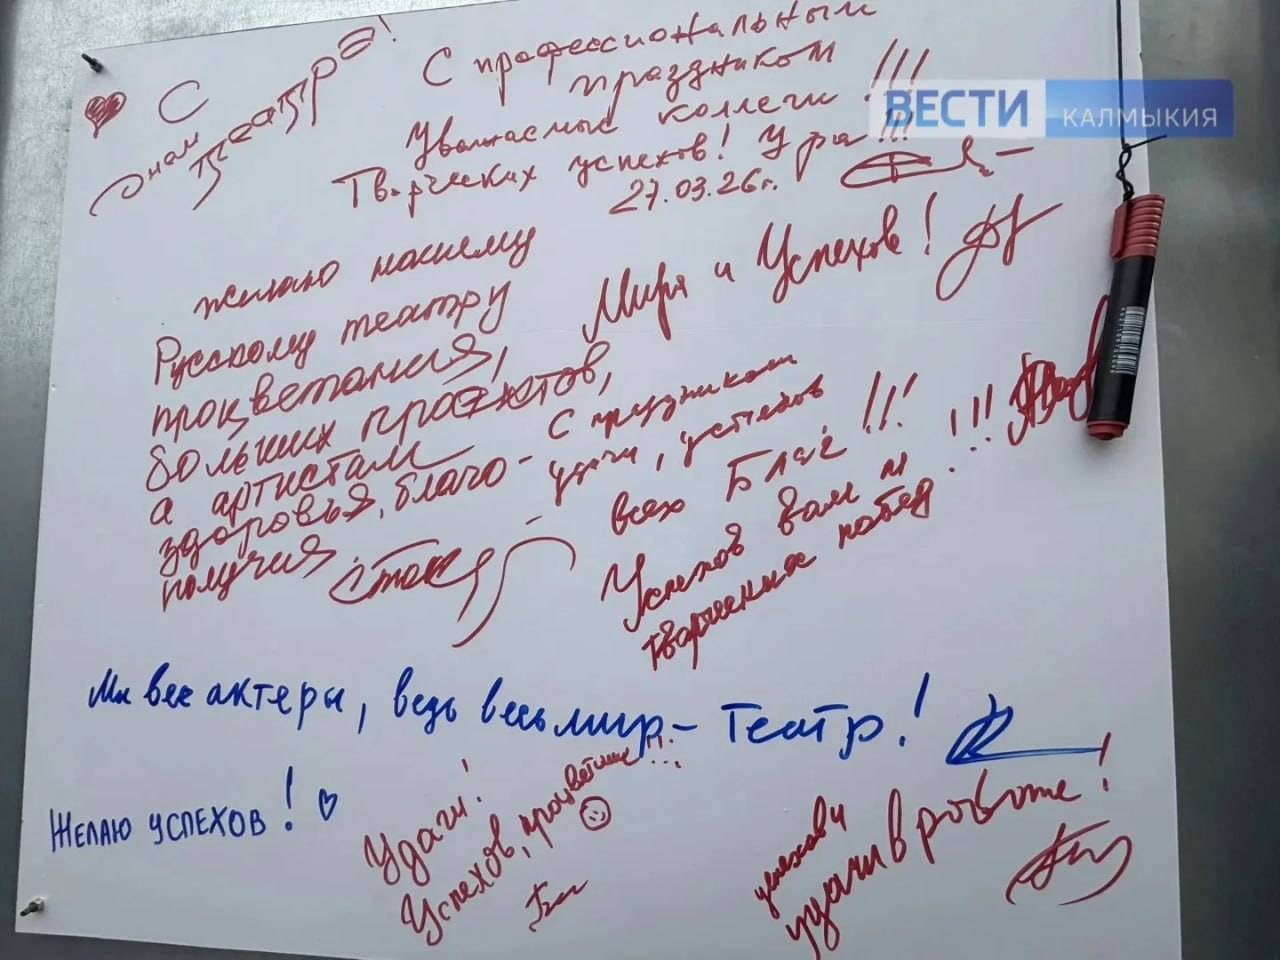 С
Днём
Театра!
С профессиональным
праздником
Уважаемые коллеги!!!
Творческих успехов! Ура!!!
27.03.26г.
ВЕСТИ КАЛМЫКИЯ
Желаю нашему
Русскому театру
процветания,
больших проэктов,
а артистам
здоровья, благо-
получия
Мира и Успехов!
С праздником
удачи, успехов
всех Благ!!!
Успехов вам и
творческих побед!!!
Мы все актеры, ведь весь мир - Театр!
Желаю успехов!
Удачи!
Успехов, процветания!!!
успехов и
удачи в работе!